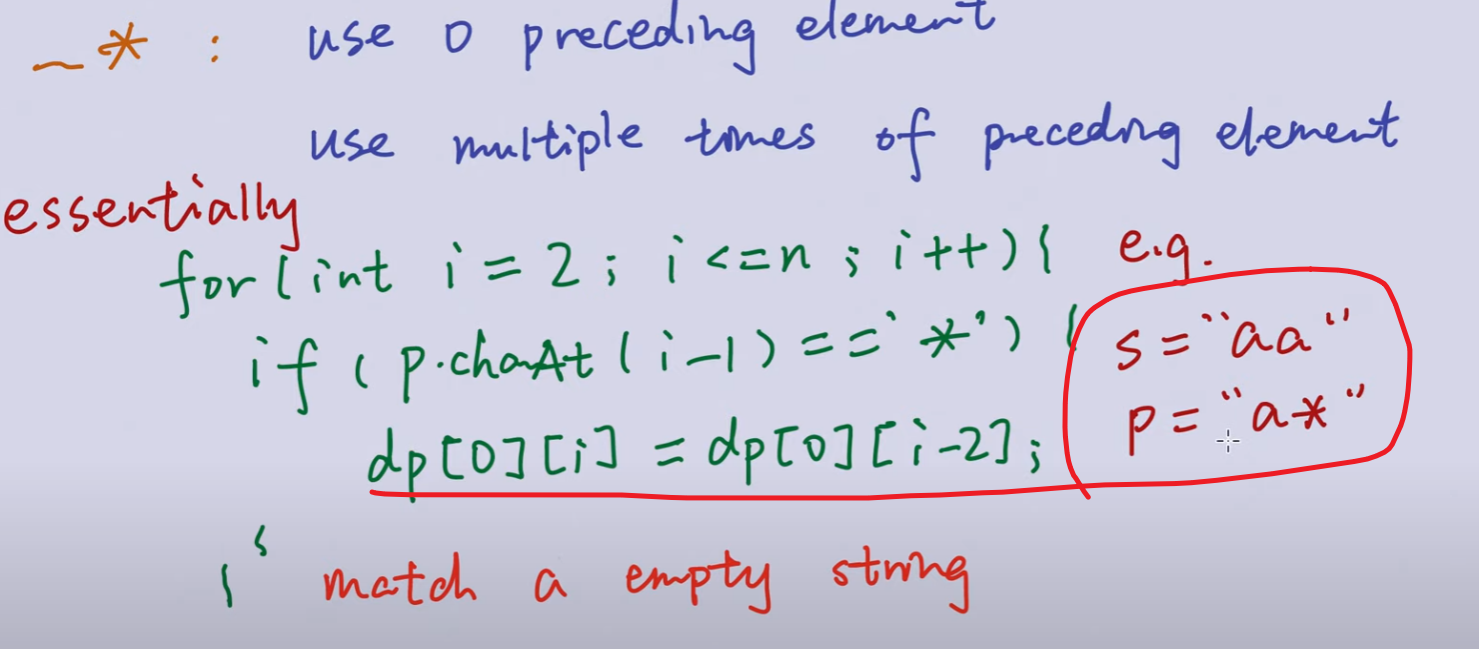 _* : use 0 preceding element
use multiple times of preceding element
essentially
for(int i = 2; i <= n; i++){
if (p.charAt(i-1) == '*') {
dp[0][i] = dp[0][i-2];
}}
match a empty string
e.g.
s = "aa"
p = "a*"